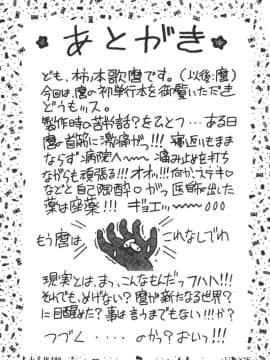 あとがき
ども、柿ノ本歌麿です。(以後、麿)
今回は、麿の初単行本を御覧いただき
どうもッス。
製作時の苦労話?をひとつ…ある日
麿の首筋に激痛がっ!!! 寝返りもまま
ならず病院へ〜〜 痛み止めを打ち
ながらも頑張る!!!オオッ!!何か、ステキ♡
などと自己陶酔♡がっ医師が出した
薬は座薬!!! ギョエッ〜〜〜
もう麿は
これなしでわ
現実とは、まっ、こんなもんだっフハハ!!!
それでも、めげない?麿が新たなる世界?
に目醒めた?事は言うまでもない!!!か?
つづく・・・・のか?おいっ!!!